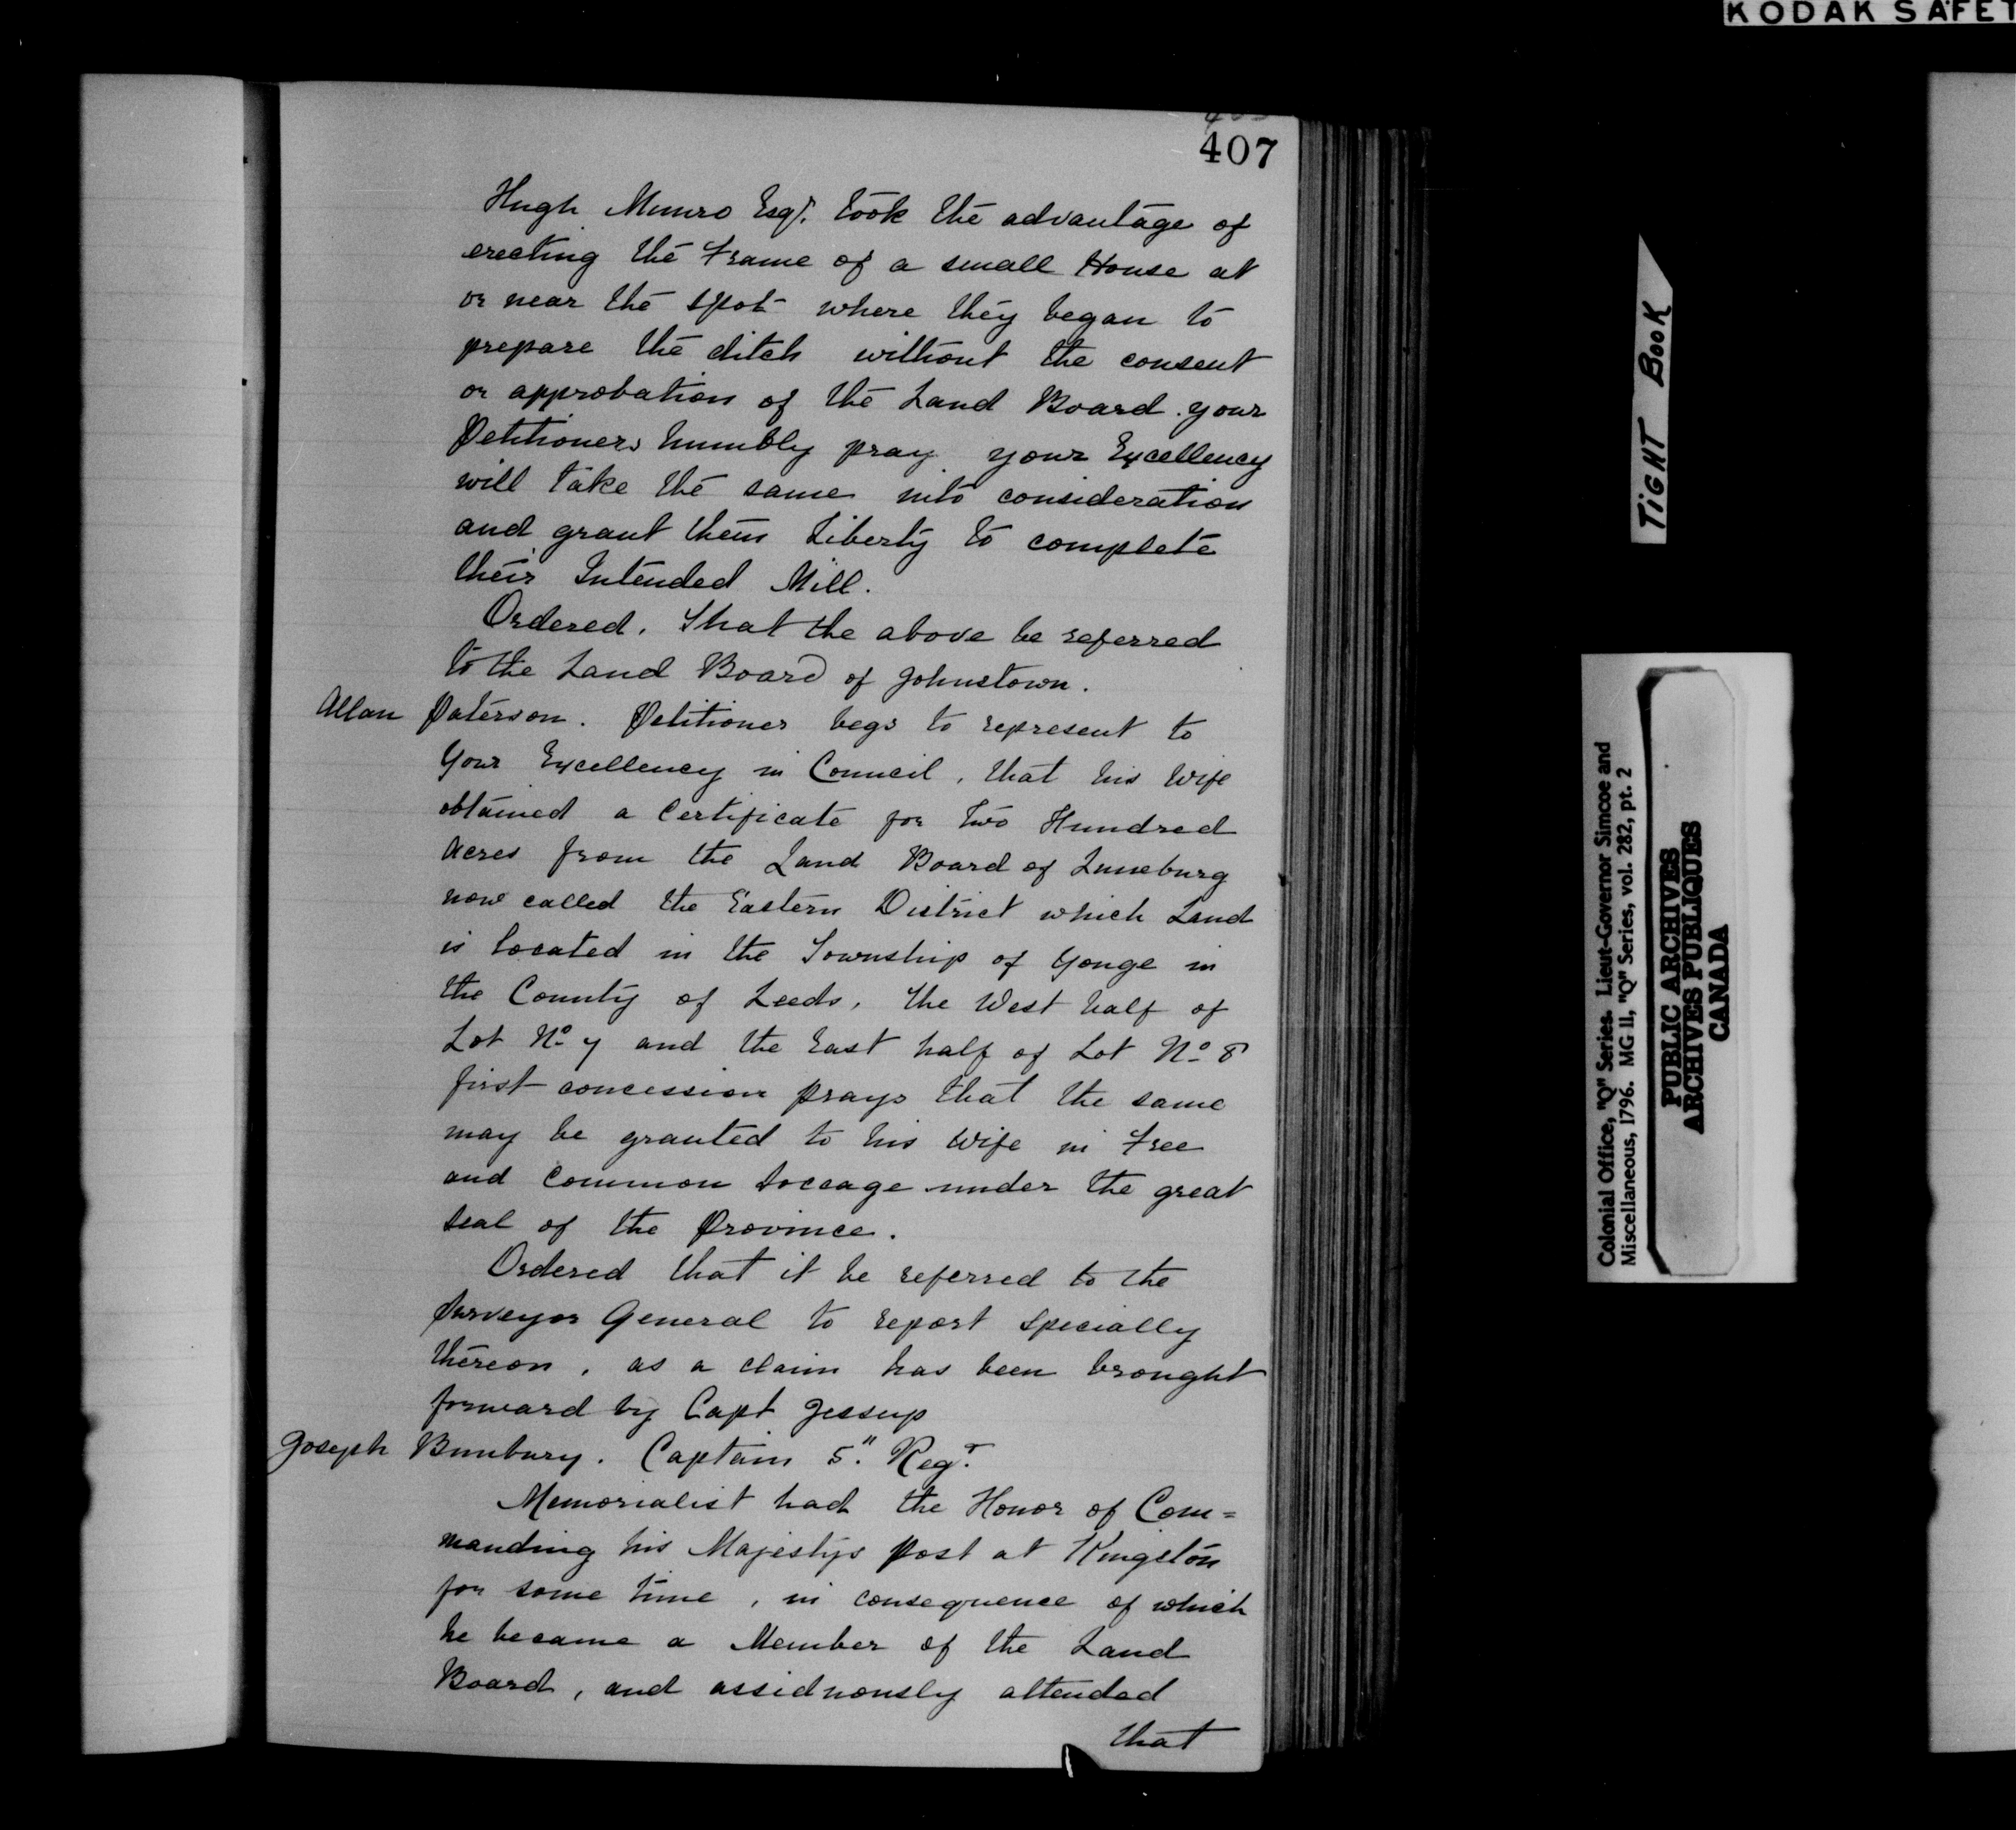 KODAK SAFET
407
Hugh Munro Esqr. took the advantage of
erecting the Frame of a small House at
or near the spot where they began to
prepare the ditch without the consent
or approbation of the Land Board. your
Petitioners humbly pray your Excellency
will take the same into consideration
and grant them Liberty to complete
their Intended Mill.
Ordered, That the above be referred
to the Land Board of Johnstown.
Allan Paterson. Petitioner begs to represent to
Your Excellency in Council, that his Wife
obtained a Certificate for Two Hundred
Acres from the Land Board of Luneburg
now called the Eastern District which Land
is located in the Township of Yonge in
the County of Leeds, the West half of
Lot No 7 and the East half of Lot No 8
first concession prays that the same
may be granted to his Wife in Free
and Common Soccage under the great
Seal of the Province.
Ordered that it be referred to the
Surveyor General to report specially
thereon, as a claim has been brought
forward by Capt Jessup
Joseph Bunbury. Captain 5" Regt.
Memorialist had the Honor of Com=
manding his Majestys post at Kingston
for some time, in consequence of which
he became a Member of the Land
Board, and assiduously attended
that
TIGHT BOOK
Colonial Office, "Q" Series. Lieut-Governor Simcoe and
Miscellaneous, 1796. MG 11, "Q" Series, vol. 282, pt. 2
PUBLIC ARCHIVES
ARCHIVES PUBLIQUES
CANADA